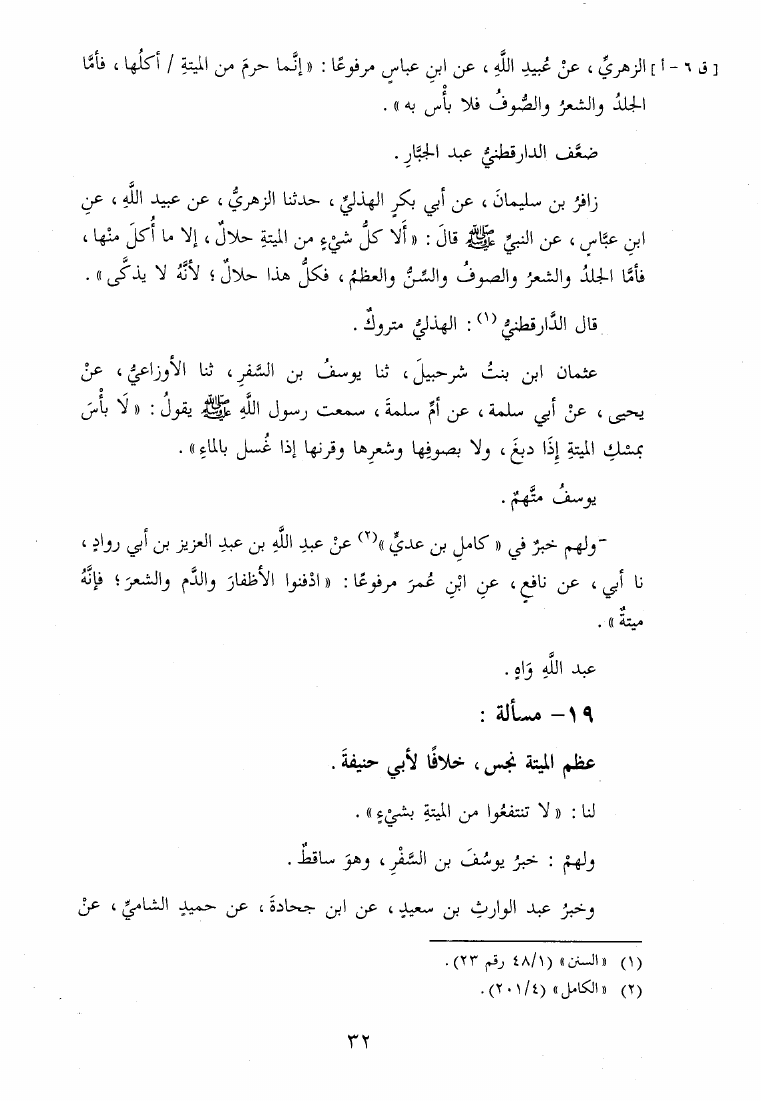 [ق ٦ - أ] الزهريِّ ، عنْ عُبيدِ اللَّهِ ، عن ابنِ عباسٍ مرفوعًا : « إنَّما حرمَ من الميتةِ / أكلُها ، فأمَّا
الجلدُ والشعرُ والصُّوفُ فلا بأْس به » .
ضعَّف الدارقطنيُّ عبد الجبَّارِ .
زافرُ بن سليمانَ ، عن أبي بكرٍ الهذليِّ ، حدثنا الزهريُّ ، عن عبيد اللَّهِ ، عنِ
ابنِ عبَّاسٍ ، عن النبيِّ ﷺ قالَ : « ألا كلُّ شيْءٍ من الميتةِ حلالٌ ، إلا ما أُكلَ منْها ،
فأمَّا الجلدُ والشعرُ والصوفُ والسِّنُّ والعظمُ ، فكلُّ هذا حلالٌ ؛ لأنَّهُ لا يذكَّى » .
قال الدَّارقطنيُّ (١) : الهذليُّ متروكٌ .
عثمان ابن بنتُ شرحبيلَ ، ثنا يوسفُ بن السَّفرِ ، ثنا الأوزاعيُّ ، عنْ
يحيى ، عنْ أبي سلمة ، عن أمِّ سلمةَ ، سمعت رسول اللَّهِ ﷺ يقولُ : « لَا بأْسَ
بمسْكِ الميتةِ إِذَا دبغَ ، ولا بصوفِها وشعرِها وقرنها إذا غُسل بالماءِ » .
يوسفُ متَّهمٌ .
-ولهم خبرٌ في « كاملِ بن عديٍّ »(٢) عنْ عبدِ اللَّهِ بن عبدِ العزيز بن أبي روادٍ ،
نا أبي ، عن نافعٍ ، عنِ ابْنِ عُمرَ مرفوعًا : « ادْفنوا الأظفارَ والدَّم والشعرَ ؛ فإنَّهُ
ميتةٌ » .
عبد اللَّهِ وَاهٍ .
١٩- مسألة :
عظم الميتة نجس ، خلافًا لأبي حنيفةَ .
لنا : « لا تنتفعُوا من الميتةِ بشيْءٍ » .
ولهمْ : خبرُ يوسُفَ بن السَّفْرِ ، وهوَ ساقطٌ .
وخبرُ عبد الوارثِ بن سعيدٍ ، عن ابن جحادةَ ، عن حميدٍ الشاميِّ ، عنْ
(١) « السنن » (٤٨/١ رقم ٢٣) .
(٢) « الكامل » (٢٠١/٤) .
٣٢